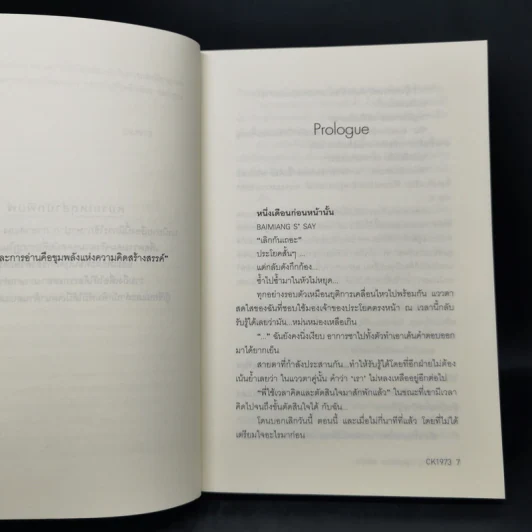 ละการอ่านคือขุมพลังแห่งความคิดสร้างสรรค์"
Prologue
หนึ่งเดือนก่อนหน้านั้น
BAIMIANG S' SAY
"เลิกกันเถอะ"
ประโยคสั้นๆ ...
แต่กลับดังกึกก้อง...
ซ้ำไปซ้ำมาในหัวไม่หยุด...
ทุกอย่างรอบตัวเหมือนยุติการเคลื่อนไหวไปพร้อมกัน แววตา
สดใสของฉันที่ชอบใช้มองเจ้าของประโยคตรงหน้า ณ เวลานี้กลับ
รับรู้ได้เลยว่ามัน...หม่นหมองเหลือเกิน
"..." ฉันยังคงนิ่งเงียบ อาการชาไปทั้งตัวทำเอาเค้นคำตอบออก
มาได้ยากเย็น
สายตาที่กำลังประสานกัน...ทำให้รับรู้ได้โดยที่อีกฝ่ายไม่ต้อง
เน้นย้ำเลยว่า ในแววตาคู่นั้น คำว่า 'เรา' ไม่หลงเหลืออยู่อีกต่อไป
"พี่ใช้เวลาคิดและตัดสินใจมาสักพักแล้ว" ในขณะที่เขามีเวลา
คิดไปจนถึงขั้นตัดสินใจได้ กับฉัน...
โดนบอกเลิกวันนี้ ตอนนี้ และเมื่อไม่กี่นาทีที่แล้ว โดยที่ไม่ได้
เตรียมใจอะไรมาก่อน
CK1973 7